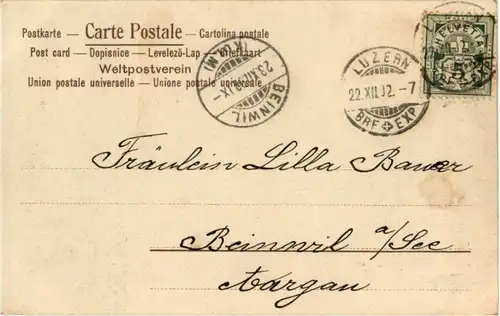 Postkarte – Carte Postale – Cartolina postale
Post card – Dopisnice – Levelező-Lap – Briefkaart
Weltpostverein
Union postale universelle – Unione postale universale
BEINWIL
23.XII.
(KULM)
LUZERN
22.XII.02.–7
BRF EXP
HELVETIA
5
Fräulein Lilla Bauer
Beinwil a/See
Aargau